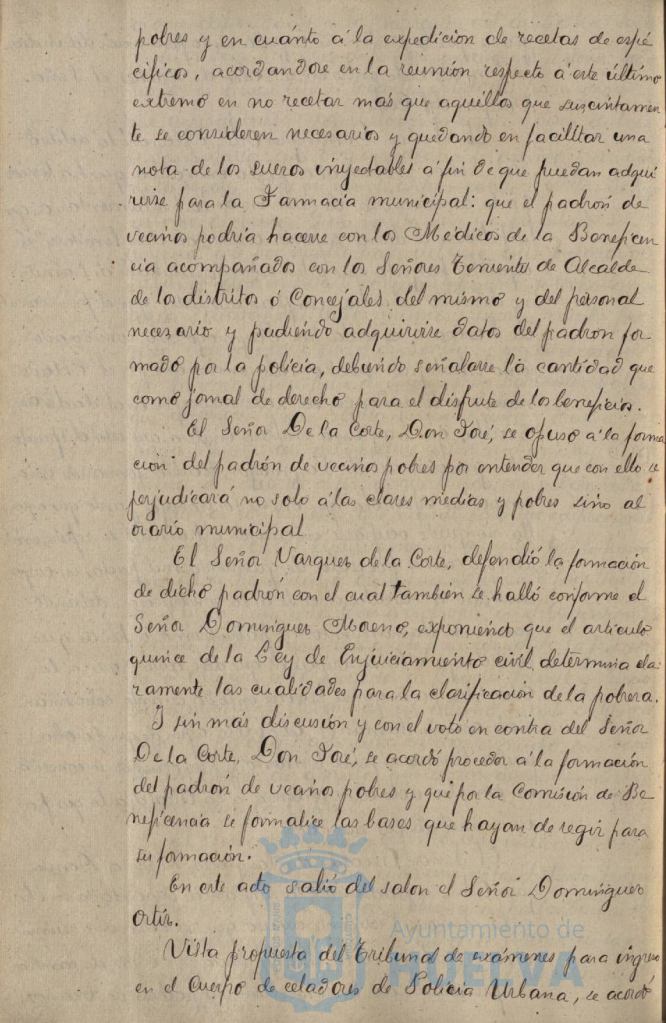 pobres y en cuánto á la expedicion de recetas de espe
cificos, acordandose en la reunión respecto á este último
extremo en no recetar mas que aquellos que suscintamen
te se consideren necesarios y quedando en facilitar una
nota de los sueros inyectables á fin de que puedan adqui
rirse para la Farmacia municipal: que el padrón de
vecinos podria hacerse con los Médicos de la Beneficen
cia acompañados con los Señores Teniente de Alcalde
de los distritos ó Concejales del mismo y del personal
necesario y pudiendo adquirirse datos del padron for
mado por la policia, debiendo señalarse la cantidad que
como jornal de derecho para el disfrute de los beneficios.
El Señor De la Corte, Don José, se opuso á la forma
ción del padrón de vecinos pobres por entender que con ello se
perjudicará no solo á las clases medias y pobres sino al
erario municipal
El Señor Vazquez de la Corte, defendió la formación
de dicho padrón con el cual también se halló conforme el
Señor Dominguez Moreno, exponiendo que el articulo
quince de la Ley de Enjuiciamiento civil determina cla
ramente las cualidades para la clasificación de la pobreza.
Y sin más discusión y con el voto en contra del Señor
De la Corte, Don José, se acordó proceder á la formación
del padrón de vecinos pobres y que por la Comisión de Be
neficencia se formalice las bases que hayan de regir para
su formación.
En este acto salió del salon el Señor Dominguez
Ortiz.
Vista propuesta del Tribunal de exámenes para ingreso
en el Cuerpo de celadores de Policia Urbana, se acordó
Ayuntamiento de
HUELVA